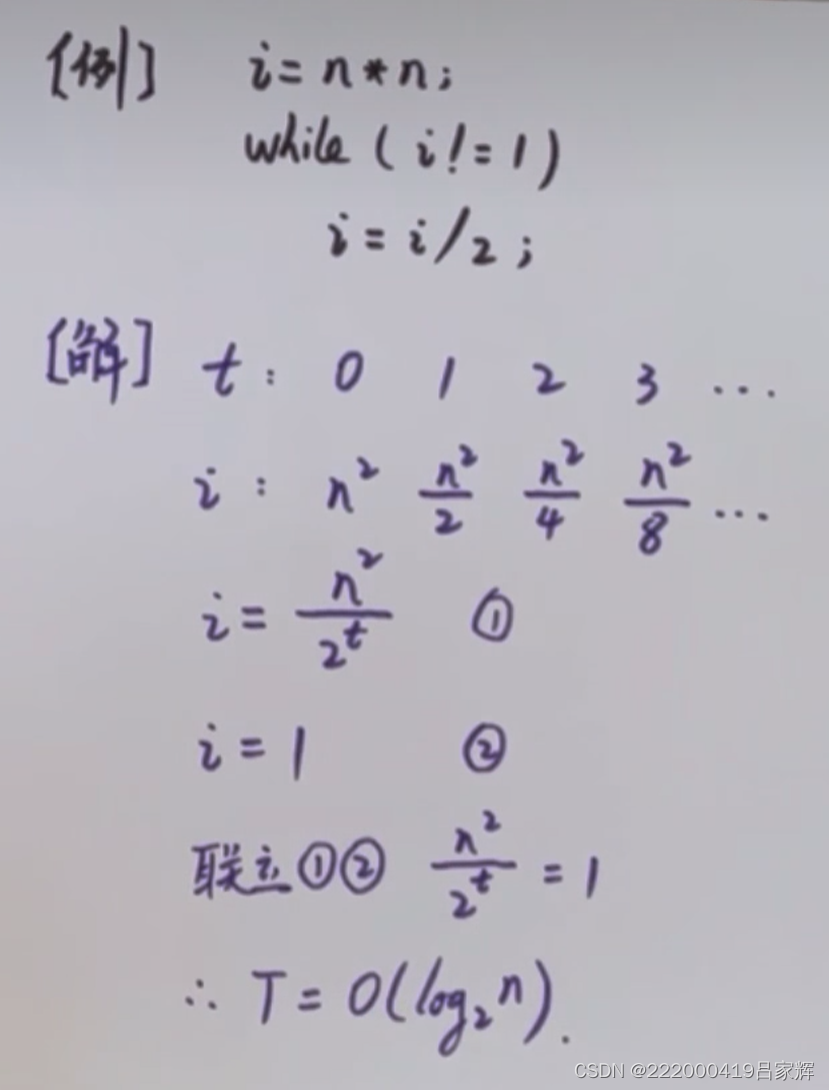 [例] i=n*n;
while(i!=1)
i=i/2;
[解] t: 0 1 2 3 ...
i: n² n²/2 n²/4 n²/8 ...
i= n²/2^t ①
i=1 ②
联立①② n²/2^t =1
∴ T=O(log₂n).
CSDN @222000419吕家辉